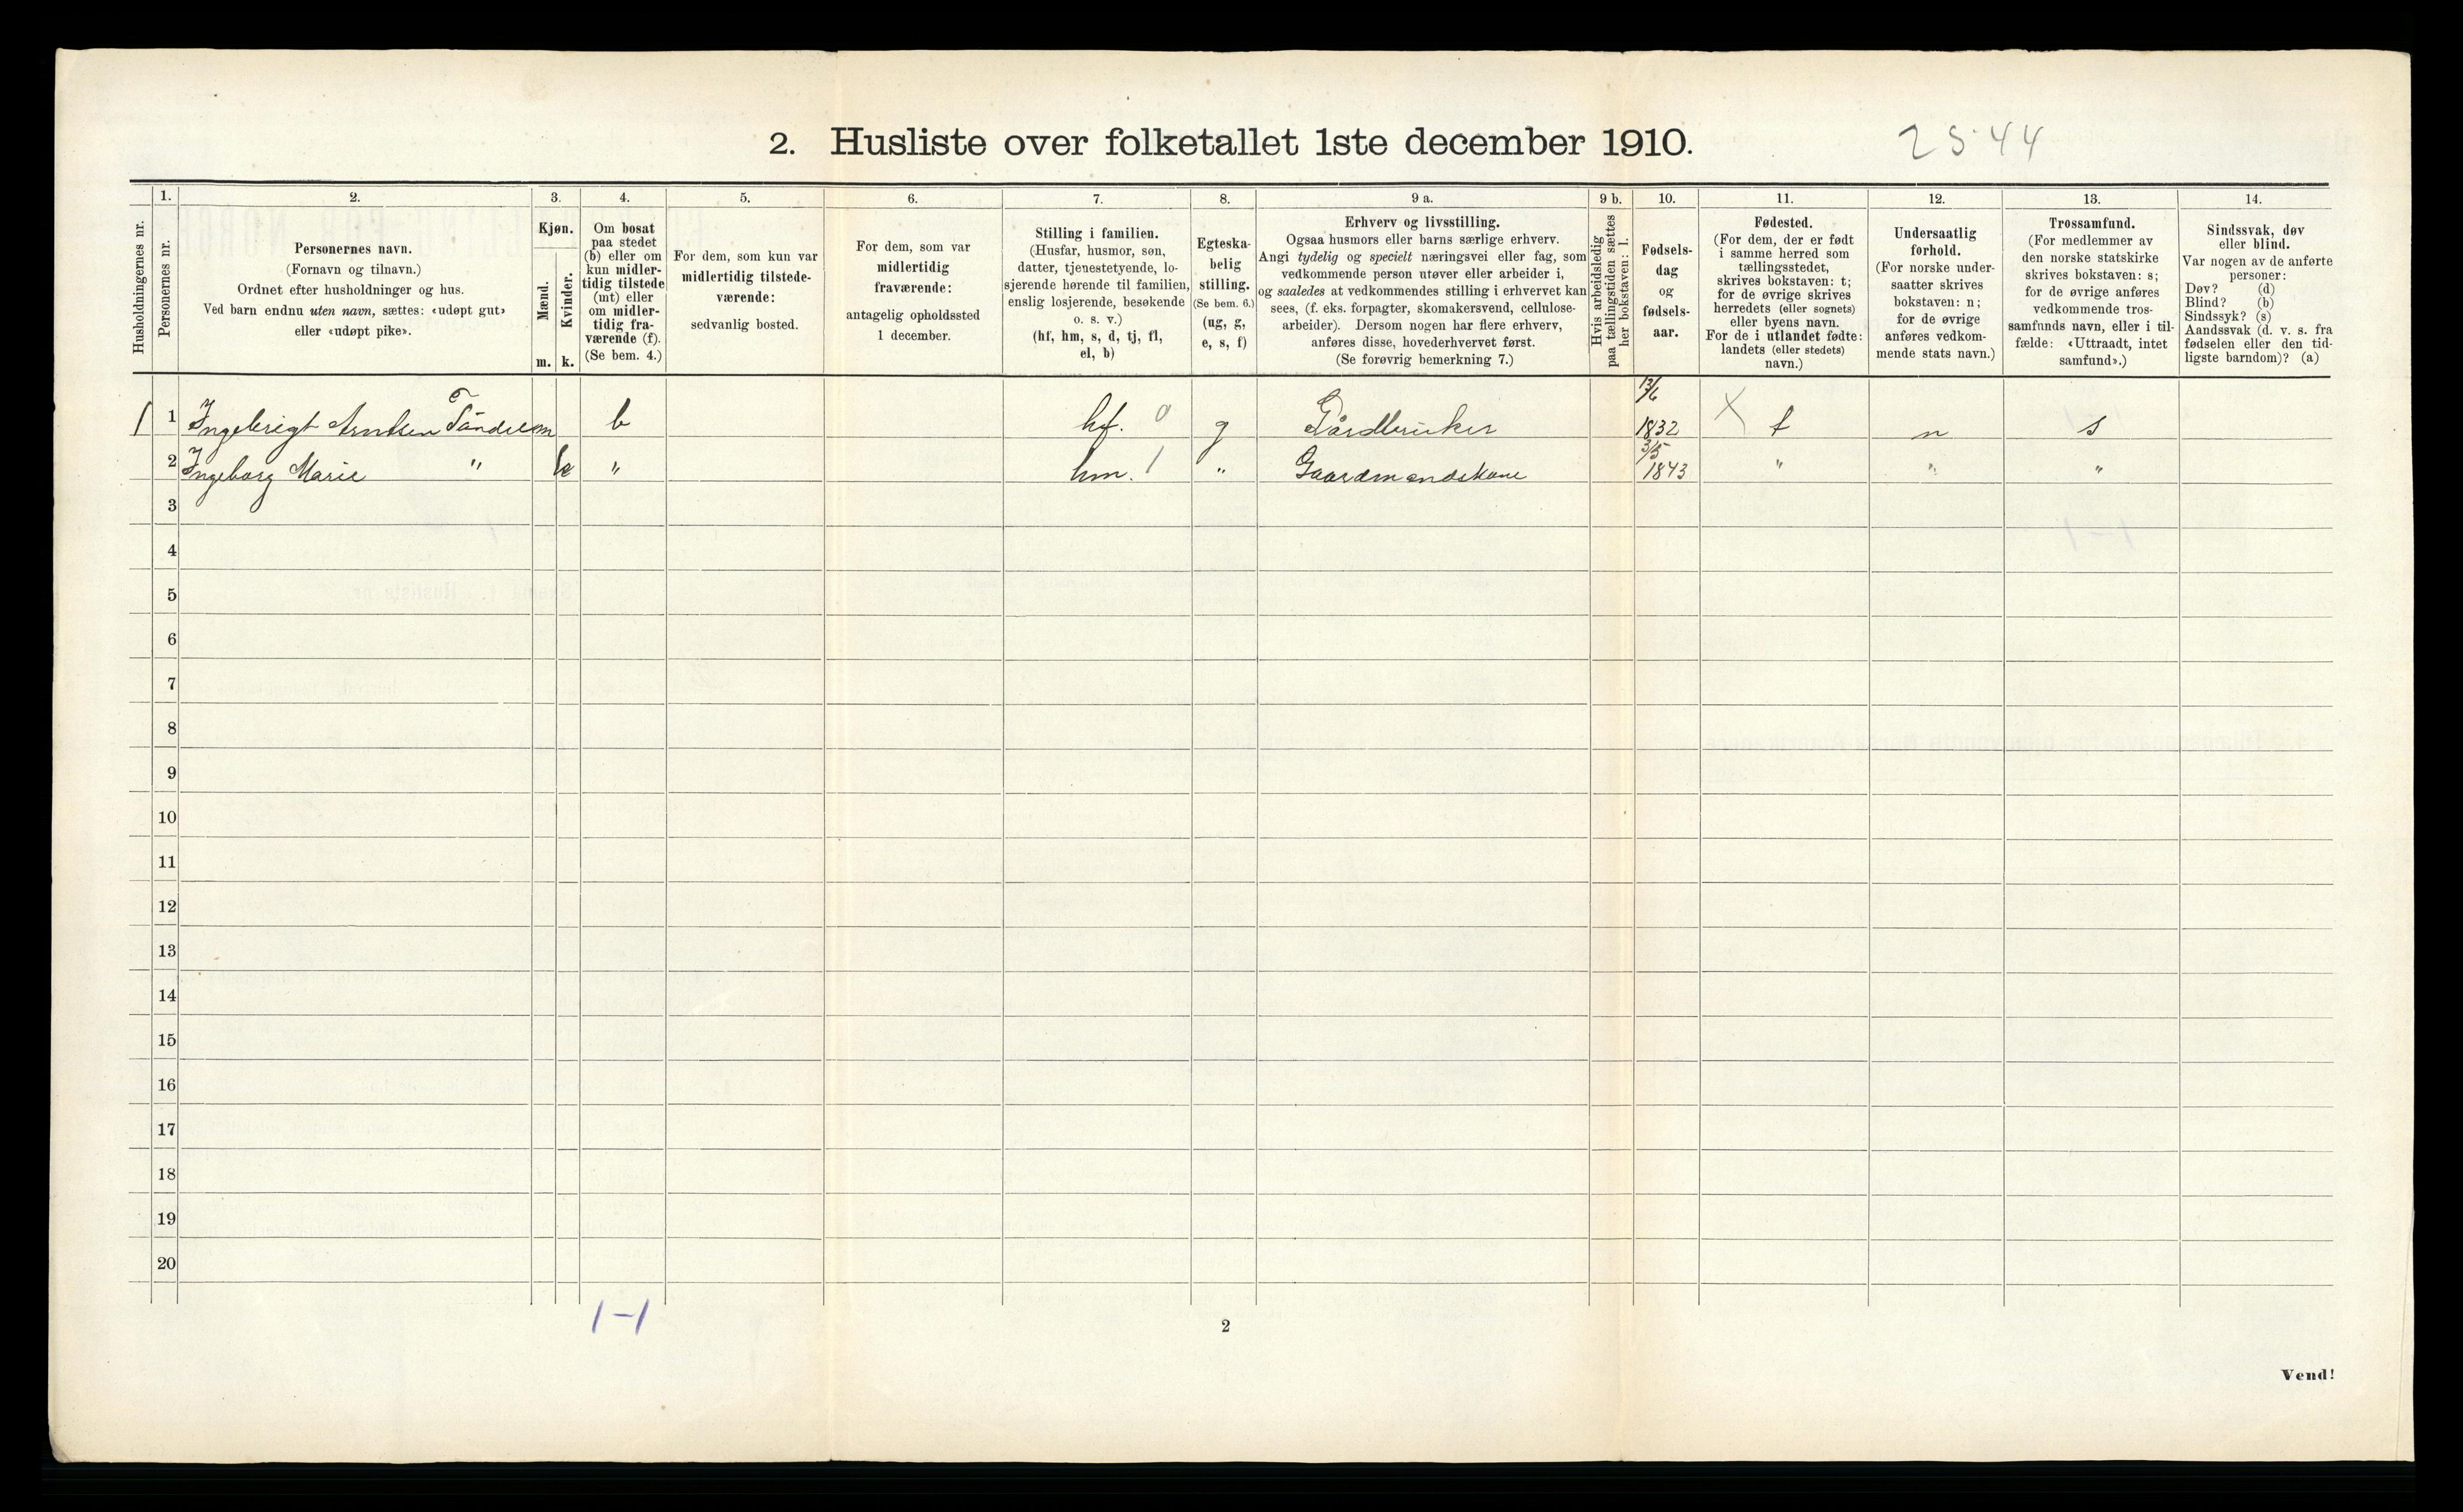 2. Husliste over folketallet 1ste december 1910.
2544
Husholdningernes nr.
1.
Personernes nr.
2.
Personernes navn.
(Fornavn og tilnavn.)
Ordnet efter husholdninger og hus.
Ved barn endnu uten navn, sættes: «udøpt gut»
eller «udøpt pike».
3.
Kjøn.
Mænd.
Kvinder.
m. k.
4.
Om bosat
paa stedet
(b) eller om
kun midler-
tidig tilstede
(mt) eller
om midler-
tidig fra-
værende (f).
(Se bem. 4.)
5.
For dem, som kun var
midlertidig tilstede-
værende:
sedvanlig bosted.
6.
For dem, som var
midlertidig
fraværende:
antagelig opholdssted
1 december.
7.
Stilling i familien.
(Husfar, husmor, søn,
datter, tjenestetyende, lo-
sjerende hørende til familien,
enslig losjerende, besøkende
o. s. v.)
(hf, hm, s, d, tj, fl,
el, b)
8.
Egteska-
belig
stilling.
(Se bem. 6.)
(ug, g,
e, s, f)
9 a.
Erhverv og livsstilling.
Ogsaa husmors eller barns særlige erhverv.
Angi tydelig og specielt næringsvei eller fag, som
vedkommende person utøver eller arbeider i,
og saaledes at vedkommendes stilling i erhvervet kan
sees, (f. eks. forpagter, skomakersvend, cellulose-
arbeider). Dersom nogen har flere erhverv,
anføres disse, hovederhvervet først.
(Se forøvrig bemerkning 7.)
9 b.
Hvis arbeidsledig
paa tællingstiden sættes
her bokstaven: l.
10.
Fødsels-
dag
og
fødsels-
aar.
11.
Fødested.
(For dem, der er født
i samme herred som
tællingsstedet,
skrives bokstaven: t;
for de øvrige skrives
herredets (eller sognets)
eller byens navn.
For de i utlandet fødte:
landets (eller stedets)
navn.)
12.
Undersaatlig
forhold.
(For norske under-
saatter skrives
bokstaven: n;
for de øvrige
anføres vedkom-
mende stats navn.)
13.
Trossamfund.
(For medlemmer av
den norske statskirke
skrives bokstaven: s;
for de øvrige anføres
vedkommende tros-
samfunds navn, eller i til-
fælde: «Uttraadt, intet
samfund».)
14.
Sindssvak, døv
eller blind.
Var nogen av de anførte
personer:
Døv? (d)
Blind? (b)
Sindssyk? (s)
Aandssvak (d. v. s. fra
fødselen eller den tid-
ligste barndom)? (a)
1 1 Ingebrigt Arntsen m b hf. 0 g Gårdbruker 13/6 1832 X t n s
2 Ingeborg Marie " k " hm. 1 " Gaardmandskone 3/5 1843 " " "
3
4
5
6
7
8
9
10
11
12
13
14
15
16
17
18
19
20
1-1
2
Vend!